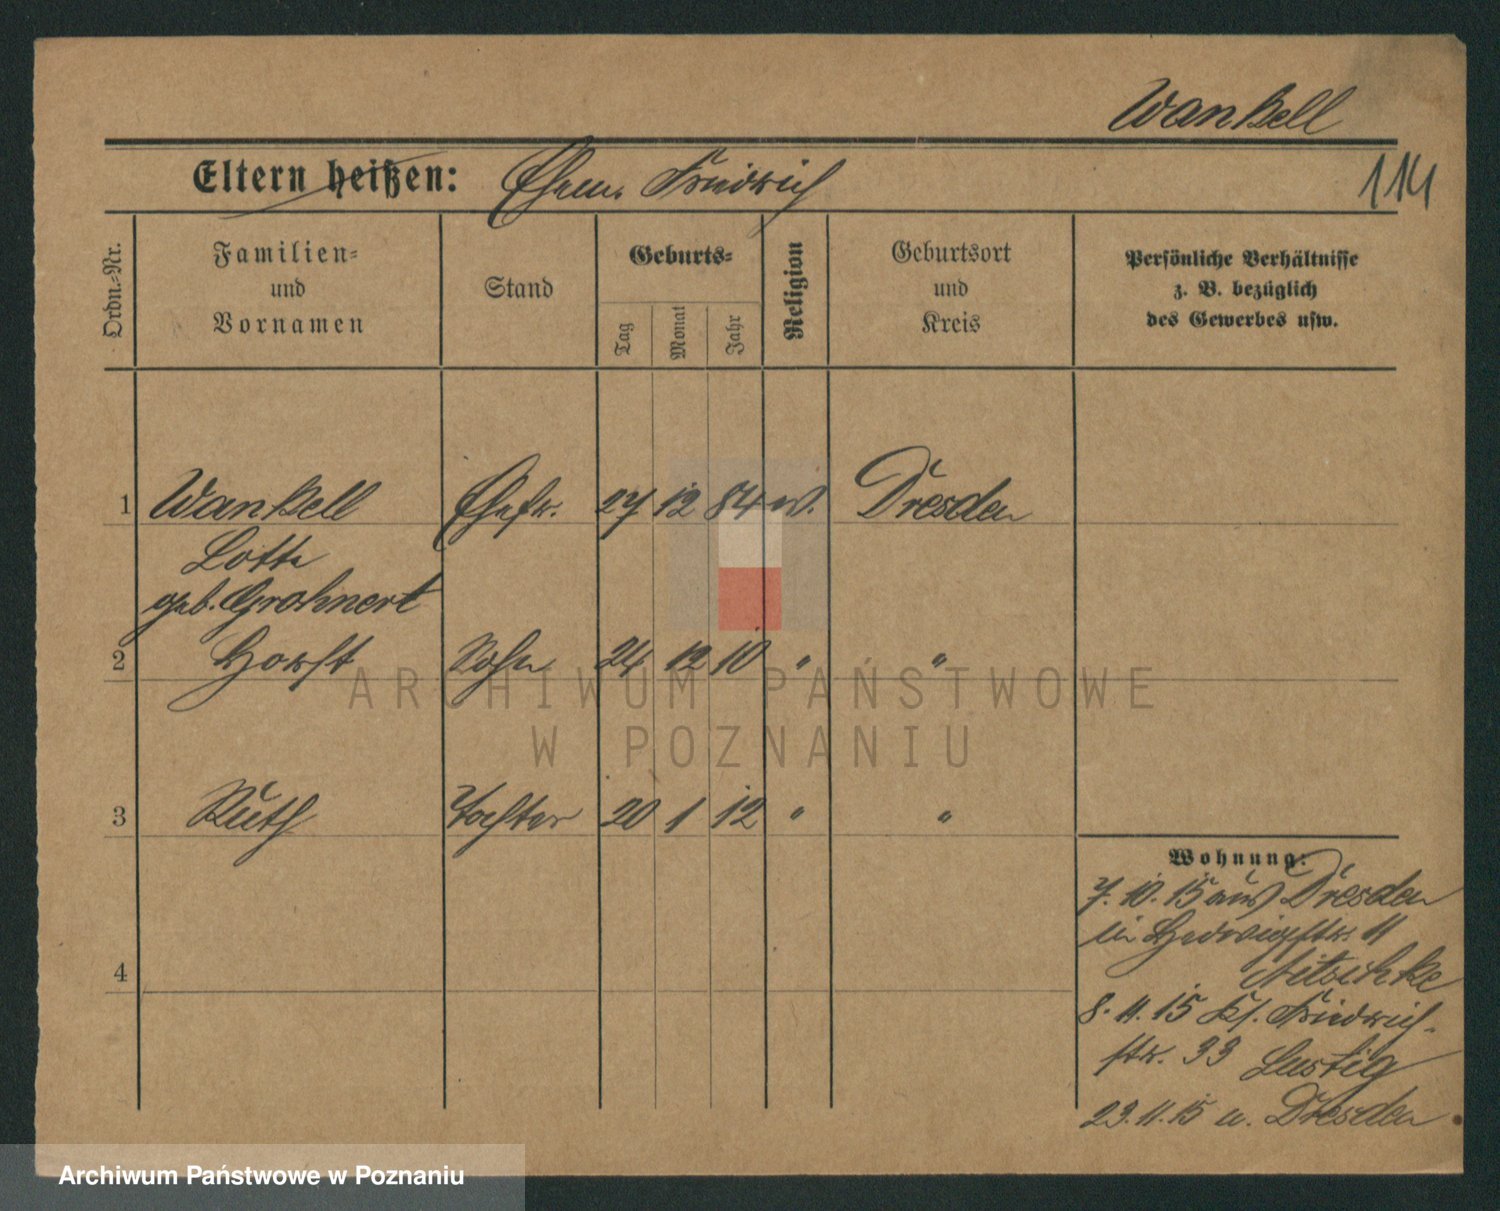 Wankell
Eltern heißen: Ehem. Friedrich
114
Ordn.-Nr.
Familien-
und
Vornamen
Stand
Geburts-
Tag
Monat
Jahr
Religion
Geburtsort
und
Kreis
Persönliche Verhältnisse
z. B. bezüglich
des Gewerbes usw.
1 Wankell Ehefr. 27 12 84 ev. Dresden
Lotte
geb. Grohnert
2 Horst Sohn 24 12 10 " "
3 Ruth Tochter 20 1 12 " "
4
Wohnung:
7. 10. 15 aus Dresden
in Hedwigstr. 11
Nitschke
8. 11. 15 Kl. Friedrich-
str. 33 Lustig
23. 11. 15 n. Dresden
ARCHIWUM PAŃSTWOWE
W POZNANIU
Archiwum Państwowe w Poznaniu